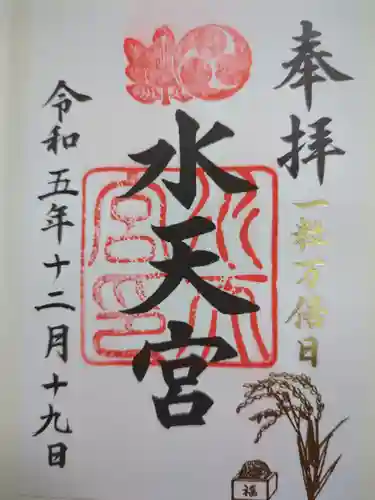 奉拝
一粒万倍日
水天宮
令和五年十二月十九日
福